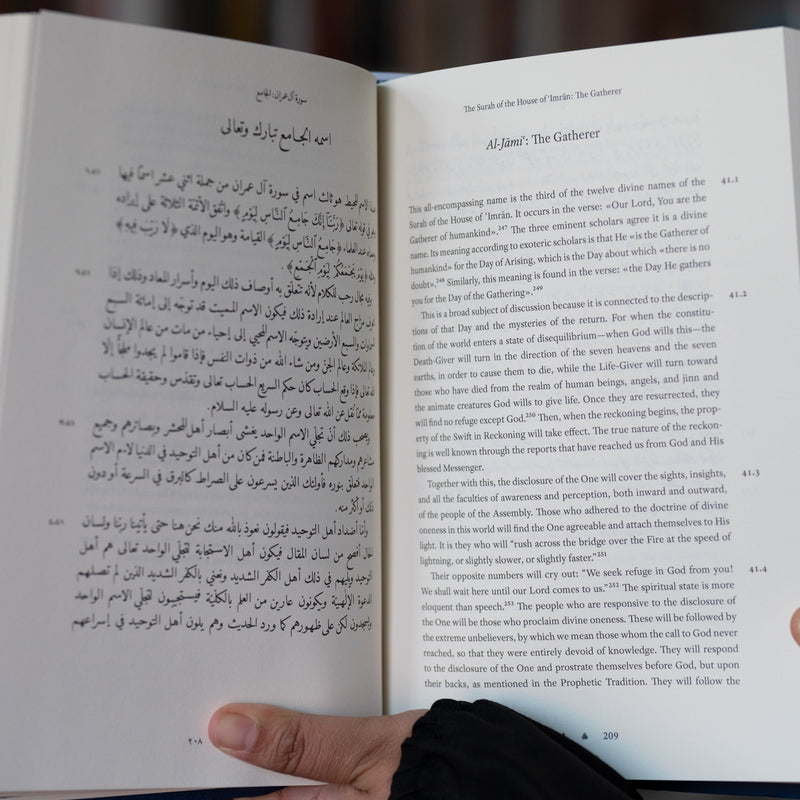 سورة آل عمران: الجامع
اسمه الجامع تبارك وتعالى
هذا الاسم المحيط هو ثالث اسم في سورة آل عمران من جملة اثني عشر اسمًا فيها
وهو في قوله تعالى ﴿رَبَّنَا إِنَّكَ جَامِعُ النَّاسِ لِيَوْمٍ﴾ واتفق الأئمّة الثلاثة على إيراده
ومعناه عند العلماء ﴿جَامِعُ النَّاسِ لِيَوْمٍ﴾ القيامة وهو اليوم الذي ﴿لَا رَيْبَ فِيهِ﴾
﴿يَوْمَ يَجْمَعُكُمْ لِيَوْمِ الْجَمْعِ﴾.
وفيه مجال رحب للكلام لأنه تتعلّق به أوصاف ذلك اليوم وأسرار المعاد وذلك إذا
مزاج العالم عند إرادة ذلك فيكون الاسم المميت قد توجّه إلى إماتة السبع
السماوات والسبع الأرضين ويتوجّه الاسم المحيي إلى إحياء من مات من عالم الإنسان
الملائكة وعالم الجنّ ومن شاء الله من ذوات النفس فإذا قاموا لم يجدوا ملجأً إلّا
الله تعالى فإذا وقع الحساب كان حكم السريع الحساب تعالى وتقدّس وحقيقة الحساب
معلومة ممّا نُقل عن الله تعالى وعن رسوله عليه السلام.
ويصحب ذلك أنّ تجلّي الاسم الواحد يغشى أبصار أهل المحشر وبصائرهم وجميع
مشاعرهم ومداركهم الظاهرة والباطنة فمن كان من أهل التوحيد في الدنيا لاءم الاسم
الواحد فتعلق بنوره فأولئك الذين يسرعون على الصراط كالبرق في السرعة أو دون
ذلك أو أكثر منه.
وأمّا أضداد أهل التوحيد فيقولون نعوذ بالله منك نحن هنا حتى يأتينا ربّنا ولسان
الحال أفصح من لسان المقال فيكون أهل الاستجابة لتجلّي الواحد تعالى هم أهل
التوحيد ويليهم في ذلك أهل الكفر الشديد ونعني بالكفر الشديد الذين لم تصلهم
الدعوة الإلهيّة ويكونون عارين من العلم بالكلّيّة فيستجيبون لتجلّي الاسم الواحد
ويسجدون لكن على ظهورهم كما ورد الحديث وهم يلون أهل التوحيد في إسراعهم
٢٠٨
The Surah of the House of ʿImrān: The Gatherer
Al-Jāmiʿ: The Gatherer
This all-encompassing name is the third of the twelve divine names of the 41.1
Surah of the House of ʿImrān. It occurs in the verse: «Our Lord, You are the
Gatherer of humankind».247 The three eminent scholars agree it is a divine
name. Its meaning according to exoteric scholars is that He «is the Gatherer of
humankind» for the Day of Arising, which is the Day about which «there is no
doubt».248 Similarly, this meaning is found in the verse: «the Day He gathers
you for the Day of the Gathering».249
This is a broad subject of discussion because it is connected to the descrip- 41.2
tions of that Day and the mysteries of the return. For when the constitu-
tion of the world enters a state of disequilibrium—when God wills this—the
Death-Giver will turn in the direction of the seven heavens and the seven
earths, in order to cause them to die, while the Life-Giver will turn toward
those who have died from the realm of human beings, angels, and jinn and
the animate creatures God wills to give life. Once they are resurrected, they
will find no refuge except God.250 Then, when the reckoning begins, the prop-
erty of the Swift in Reckoning will take effect. The true nature of the reckon-
ing is well known through the reports that have reached us from God and His
blessed Messenger.
Together with this, the disclosure of the One will cover the sights, insights, 41.3
and all the faculties of awareness and perception, both inward and outward,
of the people of the Assembly. Those who adhered to the doctrine of divine
oneness in this world will find the One agreeable and attach themselves to His
light. It is they who will “rush across the bridge over the Fire at the speed of
lightning, or slightly slower, or slightly faster.”251
Their opposite numbers will cry out: “We seek refuge in God from you! 41.4
We shall wait here until our Lord comes to us.”252 The spiritual state is more
eloquent than speech.253 The people who are responsive to the disclosure of
the One will be those who proclaim divine oneness. These will be followed by
the extreme unbelievers, by which we mean those whom the call to God never
reached, so that they were entirely devoid of knowledge. They will respond
to the disclosure of the One and prostrate themselves before God, but upon
their backs, as mentioned in the Prophetic Tradition. They will follow the
209